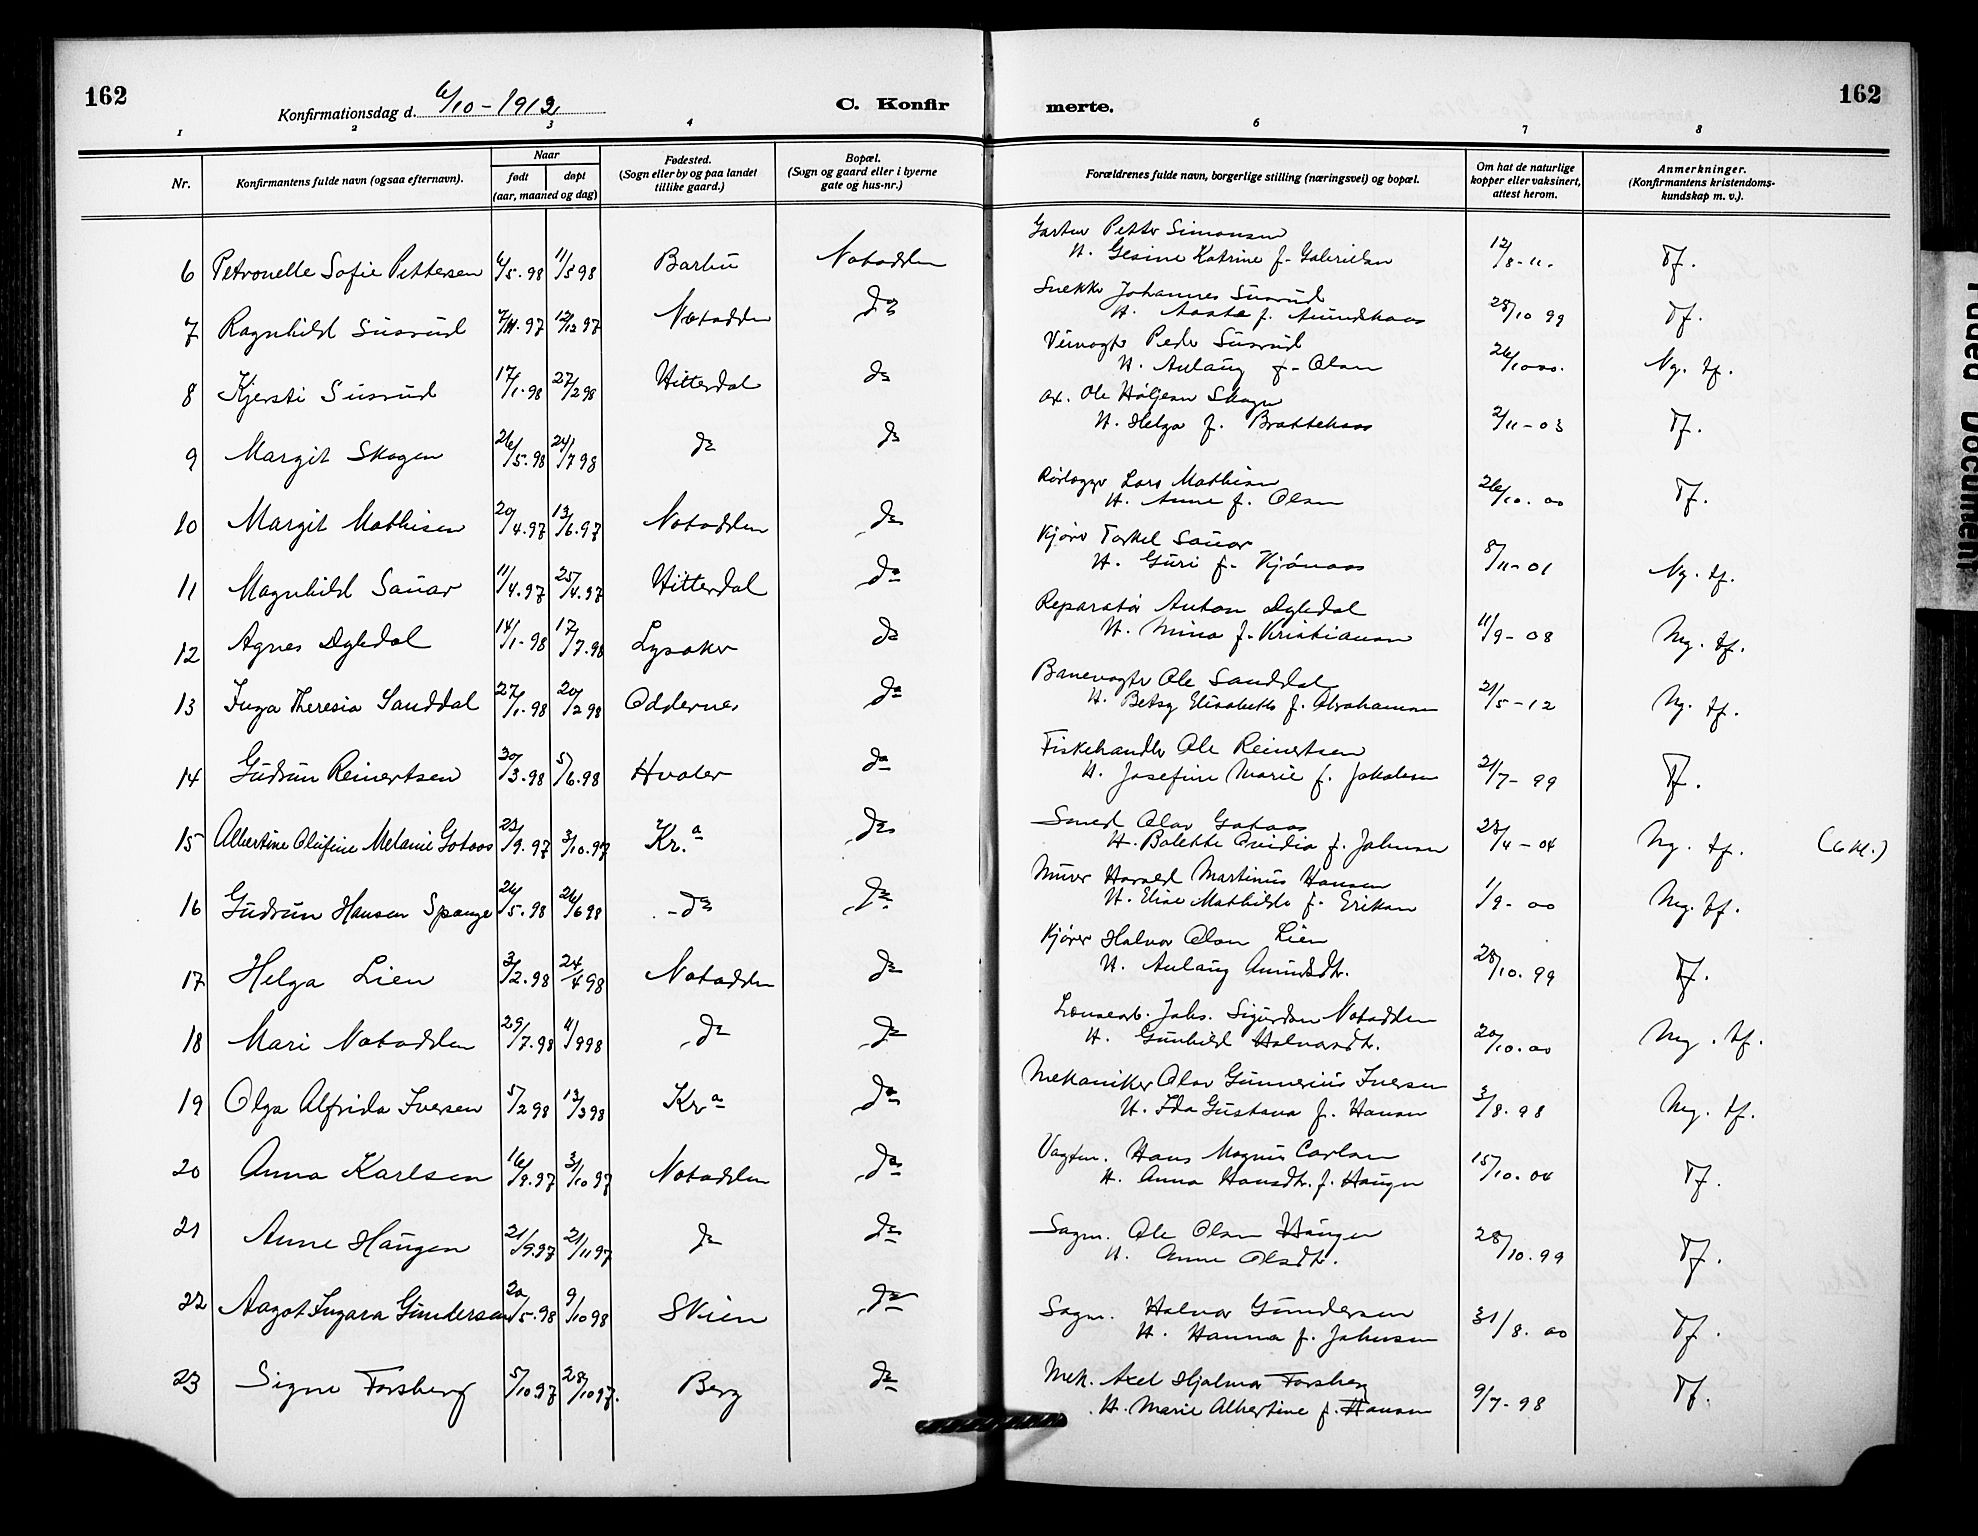 162
Konfirmationsdag d. 6/10 - 1912
C. Konfirmerte.
162
1 2 3 4 6 7 8
Nr.
Konfirmantens fulde navn (ogsaa efternavn).
Naar
født døpt
(aar, maaned og dag)
Fødested.
(Sogn eller by og paa landet
tillike gaard.)
Bopæl.
(Sogn og gaard eller i byerne
gate og hus-nr.)
Forældrenes fulde navn, borgerlige stilling (næringsvei) og bopæl.
Om hat de naturlige
kopper eller vaksinert,
attest herom.
Anmerkninger.
(Konfirmantens kristendoms-
kundskap m. v.).
6 Petronelle Sofie Pettersen 6/5.98 11/5 98 Barbu Notodden Gartner Petter Simonsen
H. Gesine Katrine f. Gabrielsen 12/8-11. Tf.
7 Ragnhild Susrud 7/11.97 12/12 97 Notodden do Snekker Johannes Susrud
H. Aaste f. Amundhaas 28/10 99 Tf.
8 Kjersti Susrud 17/1.98 27/2 98 Hitterdal do Veivogter Peder Susrud
H. Aulaug f. Olsen 26/10 00. Ng. tf.
9 Margit Skogen 26/5.98 24/7 98 do do Ole Høljesen Skogen
H. Helga f. Brattehaas 2/11-03 Tf.
10 Margit Mathisen 20/4.97 13/6.97 Notodden do Rørlægger Lars Mathisen
H. Anne f. Olsen 26/10.00 Tf.
11 Magnhild Sauar 11/4.97 25/4.97 Hitterdal do Kjører Torkel Sauar
H. Guri f. Kjønaas 8/11-01 Ng. tf.
12 Agnes Dybdal 14/1-98 17/7.98 Lysaker do Reparatør Anton Dybdal
H. Mina f. Kristiansen 11/9-08 Mg. tf.
13 Inga Theresia Sanddal 27/1.98 20/2 98 Oddernes do Banevogter Ole Sanddal
H. Betsy Elisabeth f. Abrahamsen 21/5-12 Ng. tf.
14 Gudrun Reinertsen 30/3.98 5/6.98 Hvaler do Fiskehandler Ole Reinertsen
H. Josefine Marie f. Jakobsen 21/7-99 Tf.
15 Albertine Olufine Melanie Gotaas 23/9.97 3/10.97 Kr.a do Smed Olav Gotaas
H. Bolette Ovidia f. Johnsen 28/4-04 Ng. tf. (6 kl.)
16 Gudrun Hansen Spange 26/5.98 26/6 98 - do do Murer Harald Martinius Hansen
H. Elise Mathilde f. Eriksen 1/9-00 Mg. tf.
17 Helga Lien 3/2.98 24/4 98 Notodden do Kjører Halvor Olsen Lien
H. Aulaug Amundsdtr. 28/10.99 Tf.
18 Mari Notodden 29/7.98 4/9 98 do do Lønnearb. Johs. Sigurdsen Notodden
H. Gunhild Halvorsdtr. 20/10.00 Mg. tf.
19 Olga Alfrida Iversen 5/2 98 13/3 98 Kra do Mekaniker Olav Gunnerius Iversen
H. Ida Gustava f. Hansen 3/8.98 Mg. tf.
20 Anna Karlsen 16/9.97 3/10 97 Notodden do Vagtm. Hans Magnus Carlsen
H. Anna Hansdtr. f. Haugen 15/10.04 Tf.
21 Anne Haugen 21/9.97 21/11 97 do do Sagm. Ole Olsen Haugen
H. Anne Olsdtr. 28/10.99 Tf.
22 Aagot Ingara Gundersen 20/5.98 9/10 98 Skien do Sagm. Halvor Gundersen
H. Hanna f. Johnsen 31/8.00 Tf.
23 Signe Forsberg 5/10 97 28/10 97. Berg do Mek. Axel Hjalmar Forsberg
H. Marie Albertine f. Hansen 9/7-98 Tf.